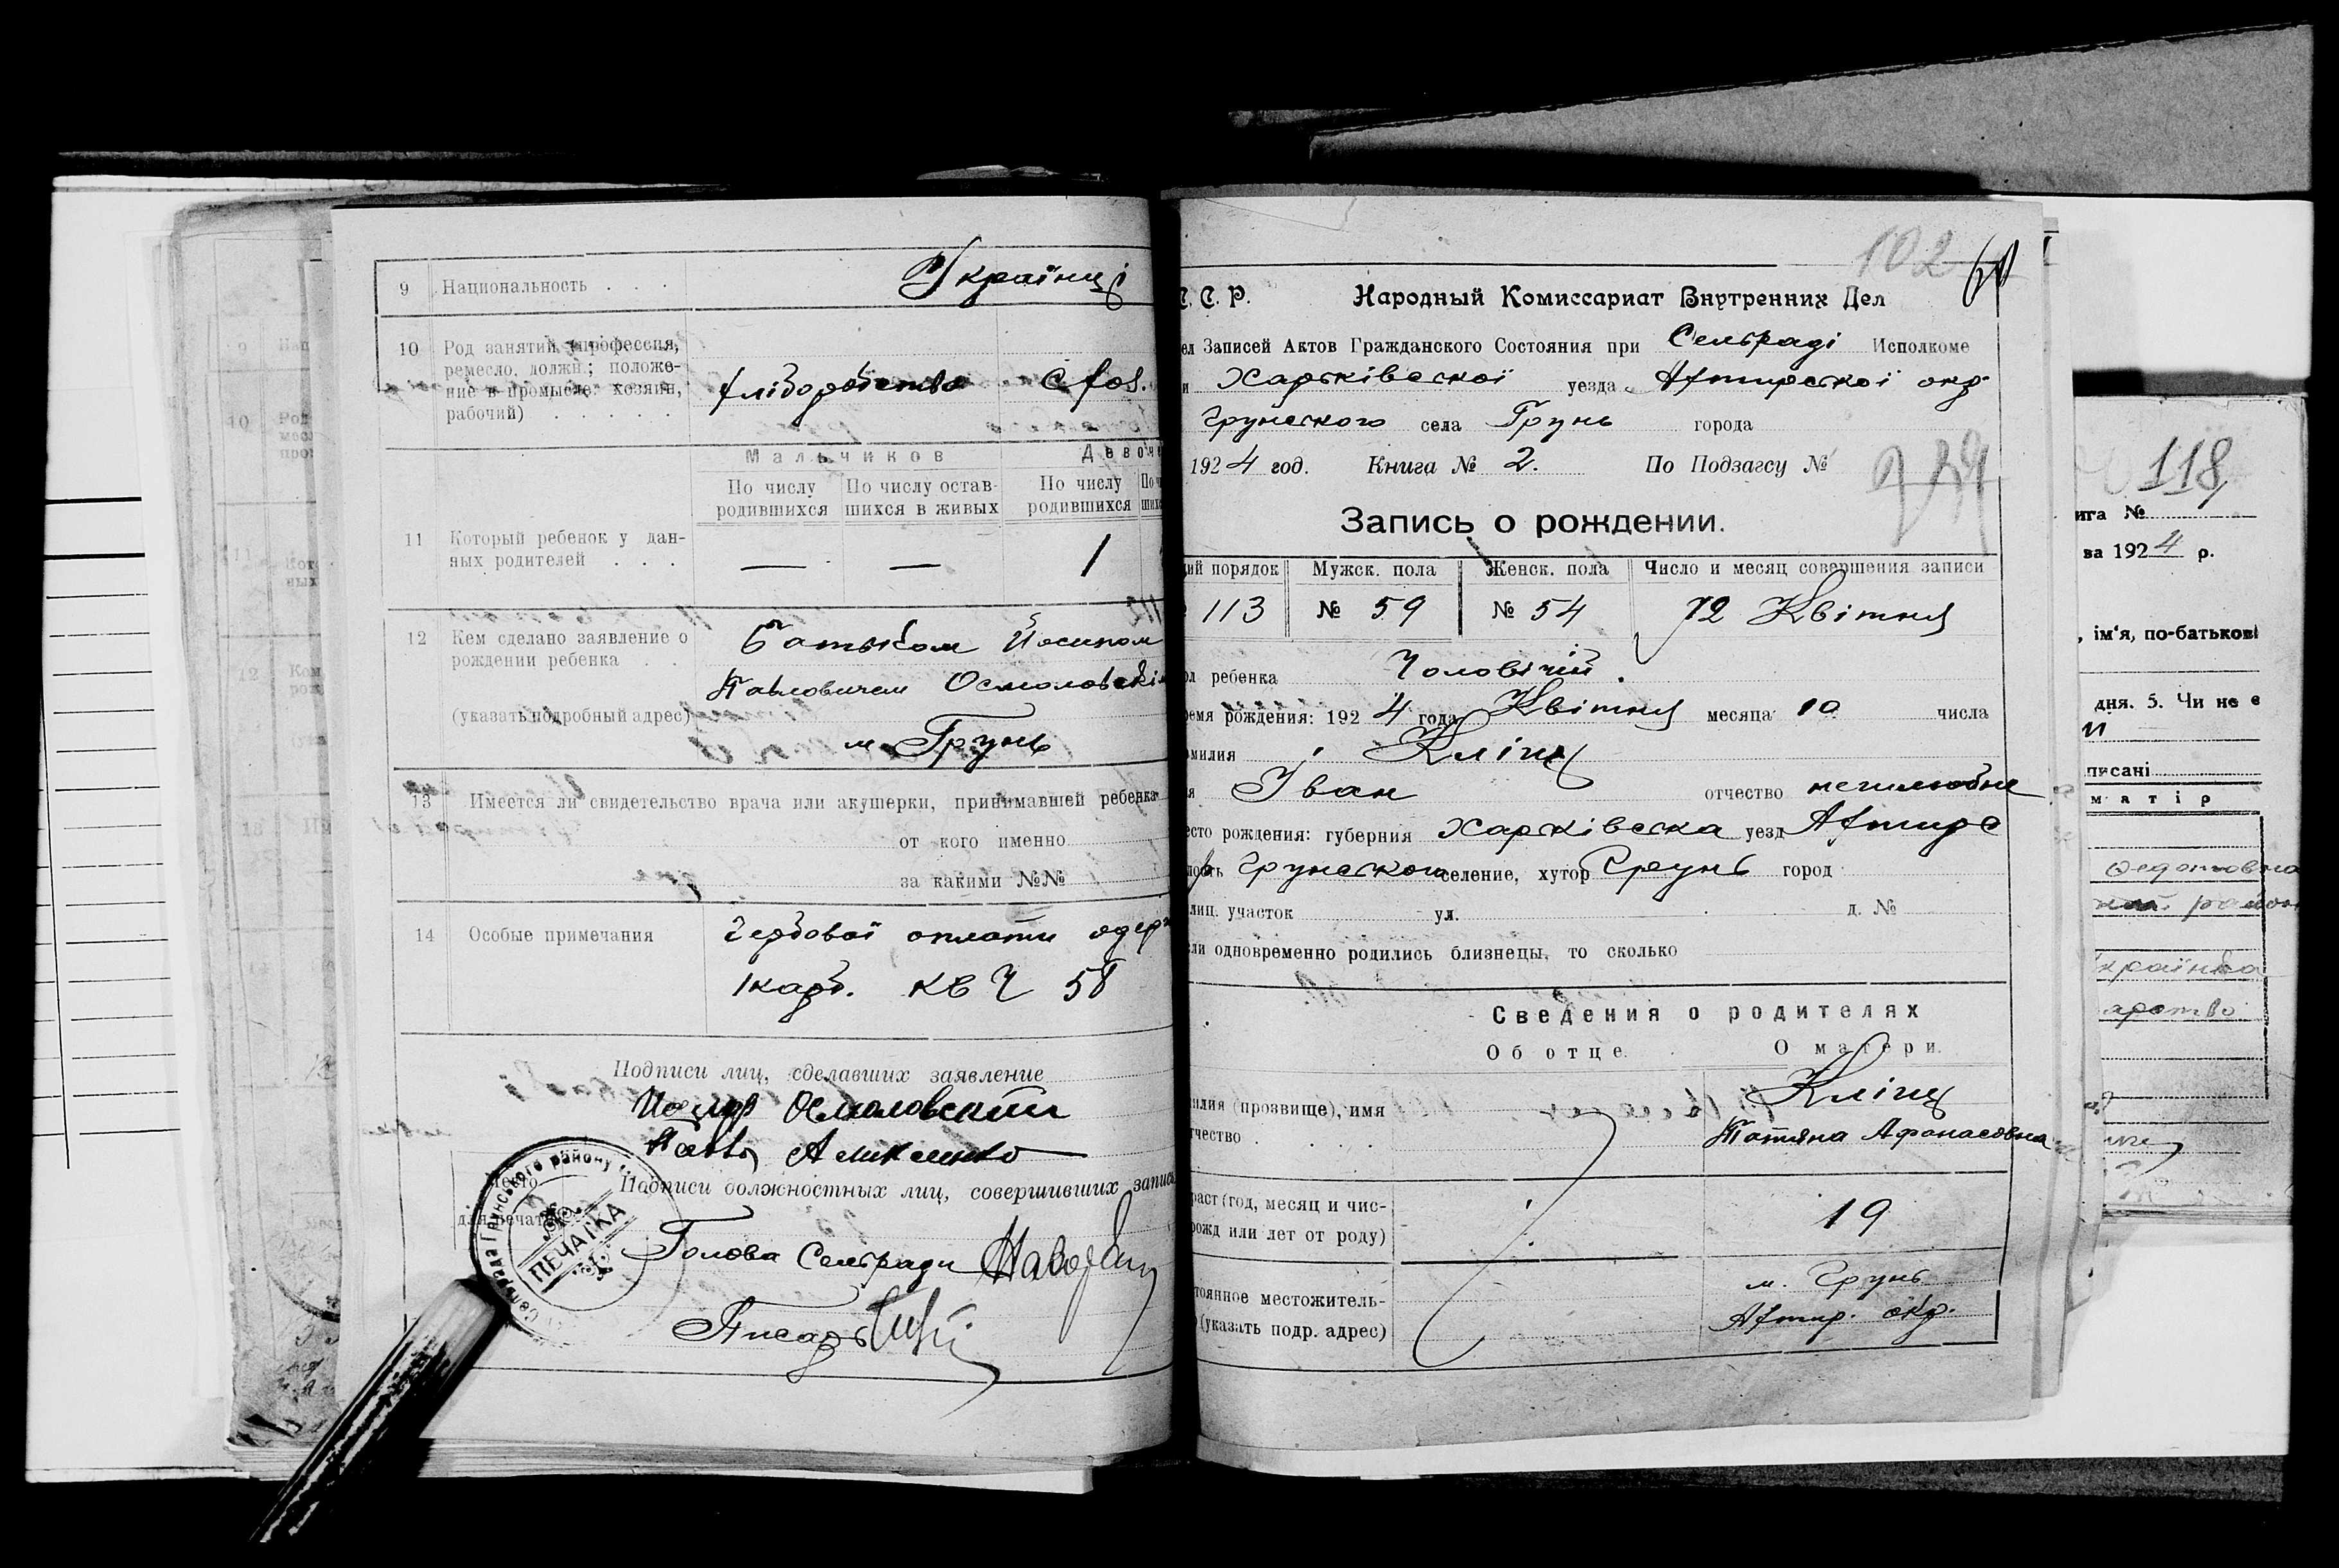 9 Национальность . . . Українці
10 Род занятий (профессия,
ремесло, должн.; положе-
ние в промысле: хозяин,
рабочий) . . . . .
хліборобство
Мальчиков
По числу родившихся
По числу остав-
шихся в живых
По числу родившихся
11 Который ребенок у дан-
ных родителей . . .
— — 1
12 Кем сделано заявление о
рождении ребенка . .
(указать подробный адрес)
Батьком Йосипом
Павловичем
м Грунь
13 Имеется ли свидетельство врача или акушерки, принимавшей ребенка
от кого именно
за какими №№
14 Особые примечания
Гербової оплати
1 карб. кв Ч 58
Подписи лиц, сделавших заявление
Осмоловский
Подписи должностных лиц, совершивших запись
Место
для печати
Сельрада Грунського району
ПЕЧАТКА
Голова Сельради
Писарь
102
С. Р. Народный Комиссариат Внутренних Дел
Записей Актов Гражданского Состояния при Сельраді Исполкоме
Харьківськой уезда Ахтирської окр
Грунського села Грунь города
1924 год. Книга № 2. По Подзагсу №
Запись о рождении.
порядок Мужск. пола Женск. пола Число и месяц совершения записи
113 № 59 № 54 12 Квітня
ребенка Чоловічий.
рождения: 1924 года Квітня месяца 10 числа
Кліщ
Іван отчество
рождения: губерния Харківська уезд
селение, хутор Грунь город
участок ул. д. №
одновременно родились близнецы, то сколько
Сведения о родителях
Об отце. О матери.
(прозвище), имя
Кліщ
Татяна Афанасовна
(год, месяц и чис-
или лет от роду)
19
местожитель-
(указать подр. адрес)
м. Грунь
Ахтир. окр.
118
№
за 1924 р.
, ім'я, по-батькові
дня. 5. Чи не є
матір